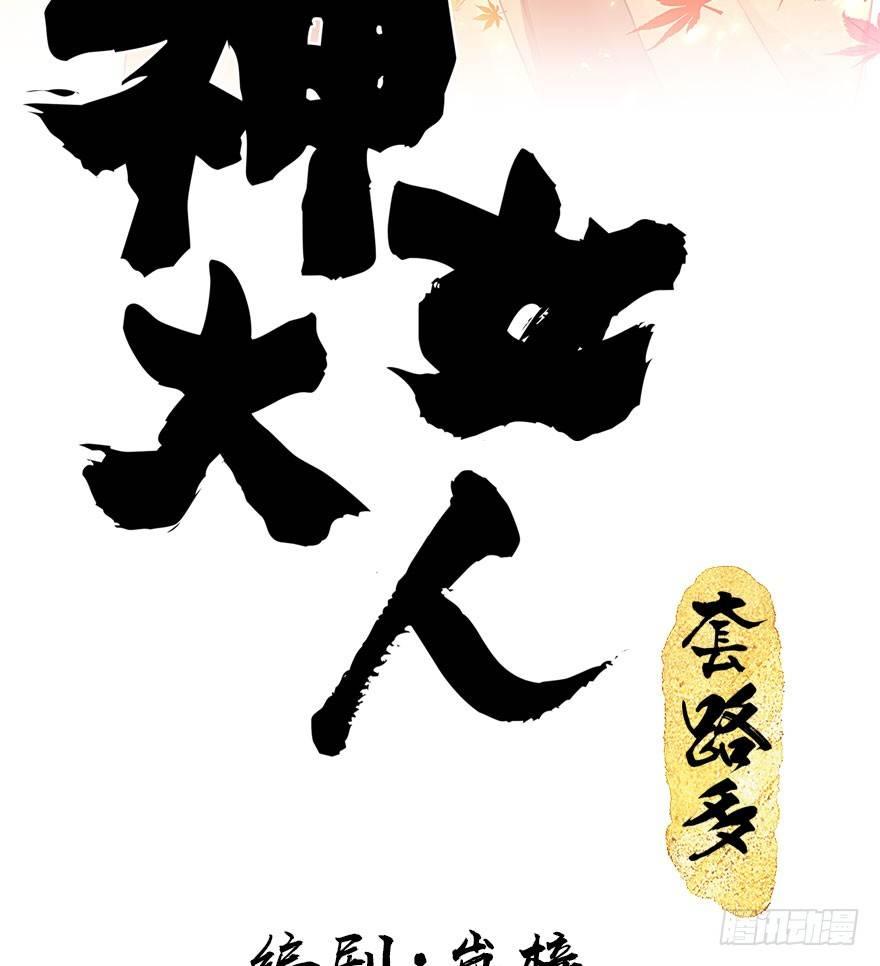 神女大人
套路多
编剧·岚樯
腾讯动漫